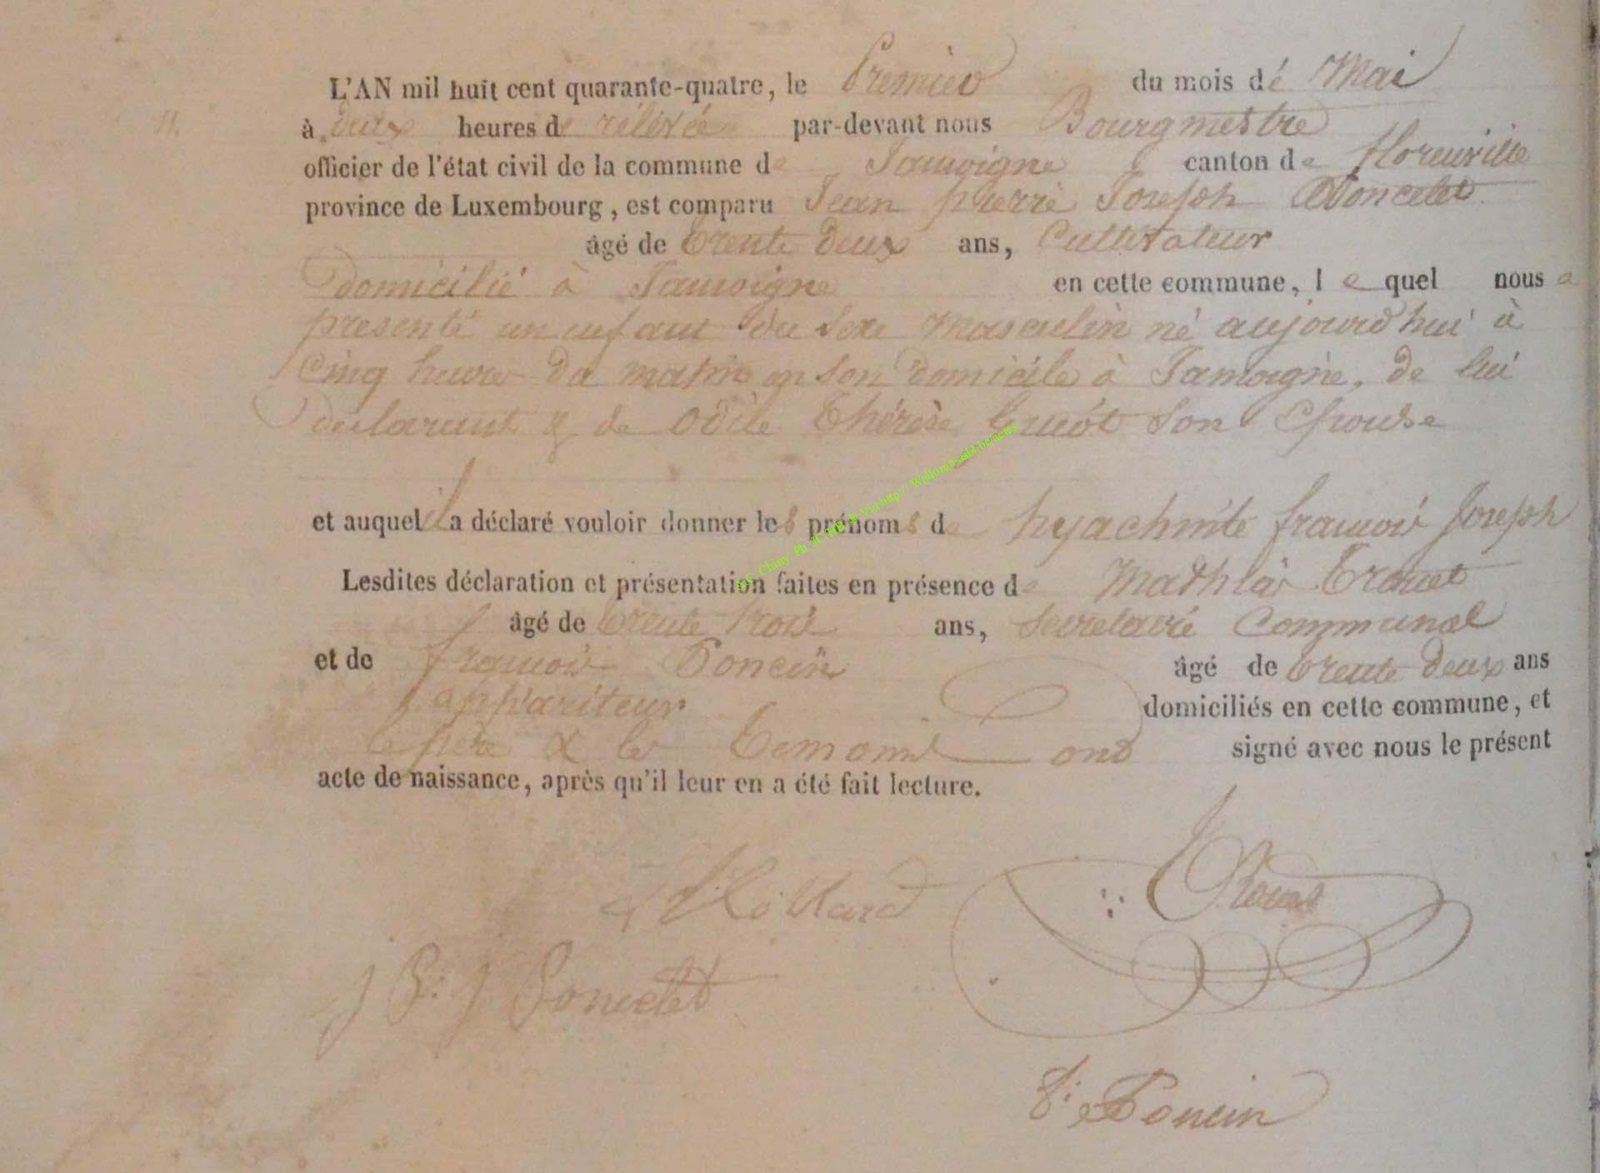 L'AN mil huit cent quarante-quatre, le Premier du mois de Mai
11.
à deux heures de rélevée par-devant nous Bourgmestre
officier de l'état civil de la commune de Jamoigne canton de florenville
province de Luxembourg, est comparu Jean pierre Joseph Poncelet
âgé de trente deux ans, Cultivateur
domicilié à Jamoigne en cette commune, lequel nous a
présenté un enfant du sexe masculin né aujourd'hui à
cinq heures du matin en son domicile à Jamoigne, de lui
déclarant & de Odile thérèse son Epouse
et auquel il a déclaré vouloir donner les prénoms de hyachinte francois Joseph
Lesdites déclaration et présentation faites en présence de Mathias
âgé de trente trois ans, Secretaire Communal
et de francois Poncin âgé de trente deux ans
appariteur domiciliés en cette commune, et
le père & les temoins ont signé avec nous le présent
acte de naissance, après qu'il leur en a été fait lecture.
J P: J Poncelet
f: Poncin